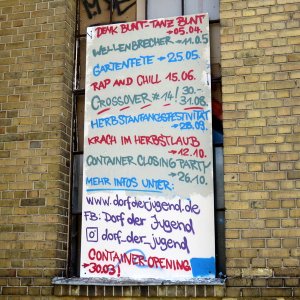 DENK BUNT-TANZ BUNT
→05.04.
WELLENBRECHER→11.05
GARTENFETE→25.05.
RAP AND CHILL 15.06.
CROSSOVER *14! 30.-
31.08.
HERBSTANFANGSFESTIVITÄT
→28.09.
KRACH IM HERBSTLAUB
→12.10.
CONTAINER CLOSING PARTY
→26.10.
MEHR INFOS UNTER:
www.dorfderjugend.de
FB: Dorf der Jugend
dorf_der_jugend
CONTAINER OPENING
→30.03!